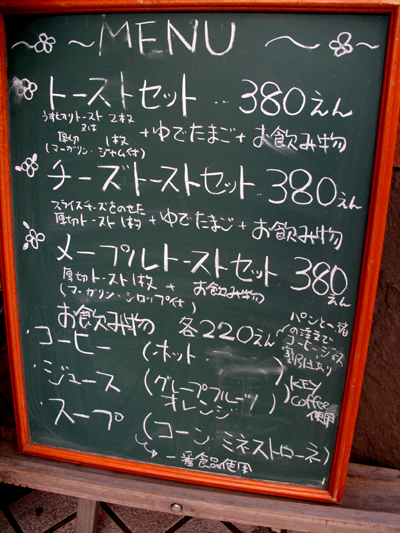 ~MENU~
トーストセット ‥ 380えん
うすきりトースト 2枚
又は
厚切 1枚
(マーガリン・ジャム付)
+ゆでたまご+お飲み物
チーズトーストセット 380えん
スライスチーズをのせた
厚切トースト1枚+ゆでたまご+お飲み物
メープルトーストセット 380えん
厚切トースト1枚 + お飲み物
(マーガリン・シロップ付)
お飲み物 各220えん
・コーヒー (ホット
・ジュース (グレープフルーツ
オレンジ )
・スープ (コーン・ミネストローネ)
→一番食品使用
パンと一緒
の注文で
コーヒー・ジュース
割引あり
KEY
Coffee
使用